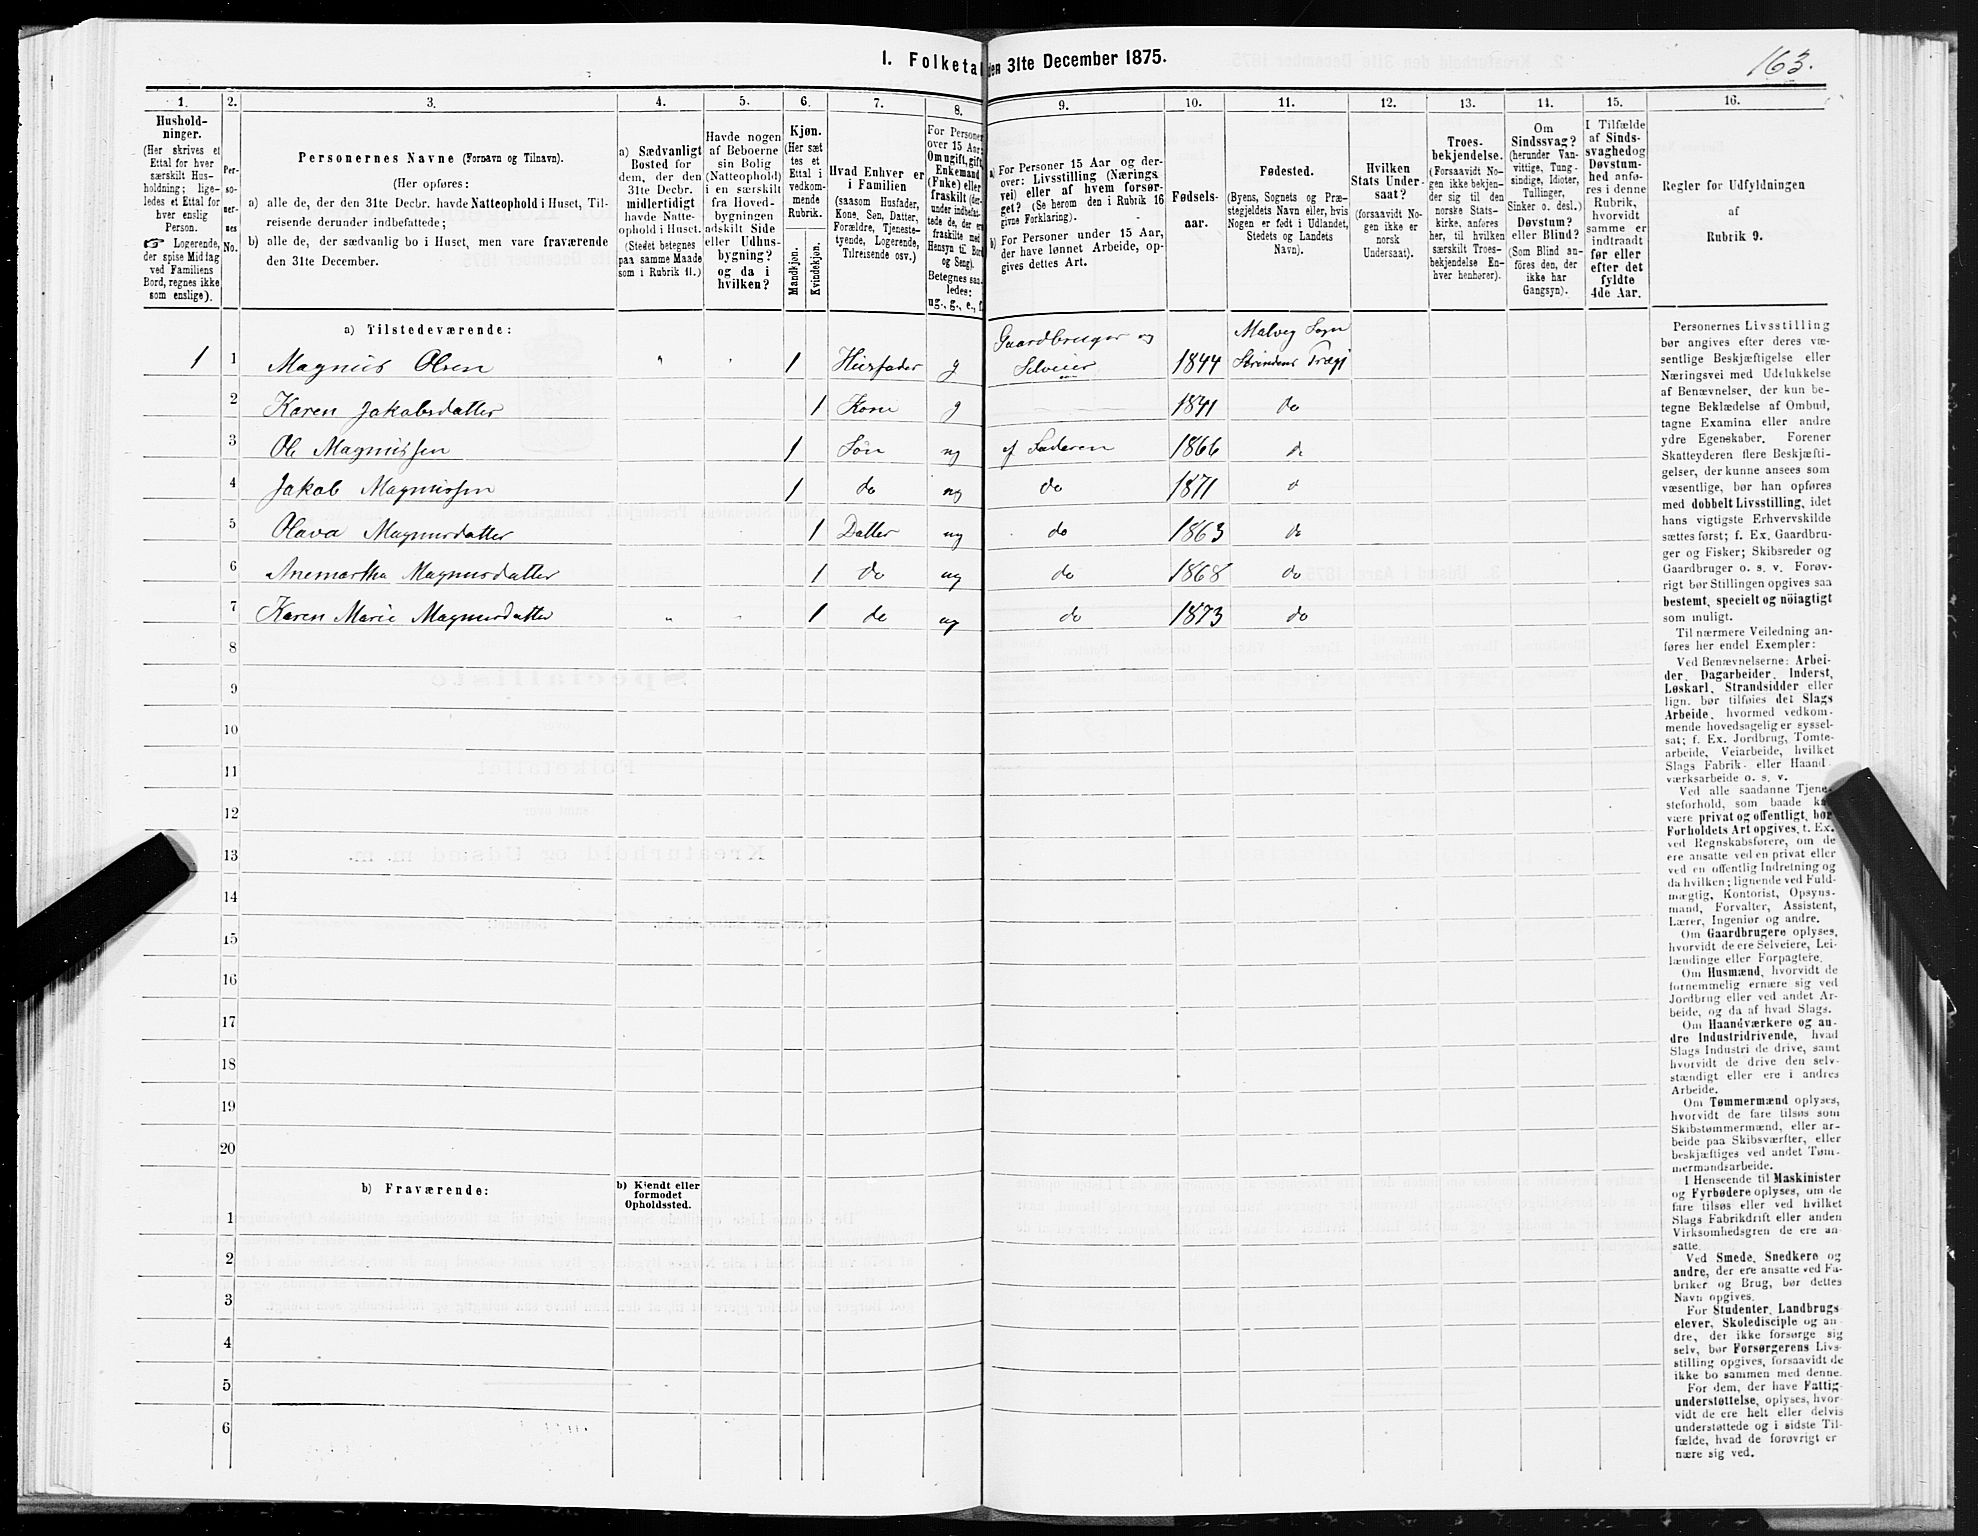 1. Folketal den 31te December 1875.
163.
1. 2. 3. 4. 5. 6. 7. 8. 9. 10. 11. 12. 13. 14. 15. 16.
Hushold-
ninger.
(Her skrives et
Ettal for hver
særskilt Hus-
holdning; lige-
ledes et Ettal for
hver enslig
Person.
☞ Logerende,
der spise Middag
ved Familiens
Bord, regnes ikke
som enslige).
Per-
so-
ner-
nes
No.
Personernes Navne (Fornavn og Tilnavn).
(Her opføres:
a) alle de, der den 31te Decbr. havde Natteophold i Huset, Til-
reisende derunder indbefattede;
b) alle de, der sædvanlig bo i Huset, men vare fraværende
den 31te December.
a) Sædvanligt
Bosted for
dem, der den
31te Decbr.
midlertidigt
havde Natte-
ophold i Huset.
(Stedet betegnes
paa samme Maade
som i Rubrik 11.)
Havde nogen
af Beboerne
sin Bolig
(Natteophold)
i en særskilt
fra Hoved-
bygningen
adskilt Side
eller Udhus-
bygning?
og da i
hvilken?
Kjøn.
(Her sæt
tes et
Ettal i
vedkom-
mende
Rubrik.
Mandkjøn.
Kvindekjøn.
Hvad Enhver er
i Familien
(saasom Husfader,
Kone, Søn, Datter,
Forældre, Tjeneste-
tyende, Logerende,
Tilreisende osv.)
For Personer
over 15 Aar:
Om ugift, gift,
Enkemand
(Enke) eller
fraskilt (der-
under indbefat-
tede de, der ere
fraskilte med
Hensyn til Bord
og Seng).
Betegnes saa-
ledes:
ug., g., e., f.
a) For Personer 15 Aar og der-
over: Livsstilling (Nærings-
vei) eller af hvem forsør-
get? (Se herom den i Rubrik 16
givne Forklaring).
b) For Personer under 15 Aar,
der have lønnet Arbeide, op-
gives dettes Art.
Fødsels-
aar.
Fødested.
(Byens, Sognets og Præ-
stegjeldets Navn eller, hvis
Nogen er født i Udlandet,
Stedets og Landets
Navn).
Hvilken
Stats Under-
saat?
(forsaavidt No-
gen ikke er
norsk
Undersaat).
Troes-
bekjendelse.
(Forsaavidt No-
gen ikke bekjen-
der sig til den
norske Stats-
kirke, anføres
her, til hvilken
særskilt Troes-
bekjendelse En-
hver henhører).
Om
Sindssvag?
(herunder Van-
vittige, Tung-
sindige, Idioter,
Tullinger,
Sinker o. desl.)
Døvstum?
eller Blind?
(Som Blind an-
föres den, der
ikke har
Gangsyn).
I Tilfælde
af Sinds-
svaghed og
Døvstum-
hed anfø-
res i denne
Rubrik,
hvorvidt
samme er
indtraadt
før eller
efter det
fyldte
4de Aar.
Regler før Udfyldningen
af
Rubrik 9.
a) Tilstedeværende:
1 1 Magnus Olsen 1 Husfader g Gaardbruger og Selveier 1844 Malvig Sogn Strindens Prægj
2 Karen Jakobsdatter 1 Kone g 1841 do
3 Ole Magnussen 1 Søn ug af Faderen 1866 do
4 Jakob Magnussen 1 do ug do 1871 d
5 Olava Magnusdatter 1 Datter ug do 1863 do
6 Anemartha Magnusdatter 1 do ug do 1868 do
7 Karen Marie Magnusdatter 1 do ug do 1873 do
8
9
10
11
12
13
14
15
16
17
18
19
20
b) Fraværende:
b) Kjendt eller
formodet
Opholdssted.
1
2
3
4
5
6
Personernes Livsstilling
bør angives efter deres væ-
sentlige Beskjæftigelse eller
Næringsvei med Udelukkelse
af Benævnelser, der kun be-
tegne Beklædelse af Ombud,
tagne Examina eller andre
ydre Egenskaber. Forener
Skatteyderen flere Beskjæfti-
gelser, der kunne ansees som
væsentlige, bør han opføres
med dobbelt Livsstilling, idet
hans vigtigste Erhvervskilde
sættes først; f. Ex. Gaardbru-
ger og Fisker; Skibsreder og
Gaardbruger o. s. v. Forøv-
rigt bør Stillingen opgives saa
bestemt, specielt og nöiagtigt
som muligt.
Til nærmere Veiledning an-
føres her endel Exempler:
Ved Benævnelserne: Arbei-
der, Dagarbeider, Inderst,
Løskarl, Strandsidder eller
lign. bør tilføies det Slags
Arbeide, hvormed vedkom-
mende hovedsagelig er syssel-
sat; f. Ex. Jordbrug, Tomte-
arbeide, Veiarbeide, hvilket
Slags Fabrik- eller Haand-
værksarbeide o. s. v.
Ved alle saadanne Tjene-
steforhold, som baade ka
være privat og offentligt, bør
Forholdets Art opgives, t. Ex.
ved Regnskabsførere, om de
ere ansatte ved en privat eller
ved en offentlig Indretning og
da hvilken; lignende ved Fuld-
mægtig, Kontorist, Opsyns-
mand, Forvalter, Assistent,
Lærer, Ingeniør og andre.
Om Gaardbrugere oplyses,
hvorvidt de ere Selveiere, Lei-
lændinge eller Forpagtere.
Om Husmænd, hvorvidt de
fornemmelig ernære sig ved
Jordbrug eller ved andet Ar-
beide, og da af hvad Slags.
Om Haandværkere og an-
dre Industridrivende, hvad
Slags Industri de drive, samt
hvorvidt de drive den selv-
stændigt eller ere i andres
Arbeide.
Om Tømmermænd oplyses,
hvorvidt de fare tilsøs som
Skibstømmermænd, eller ar-
beide paa Skibsværfter, eller
beskjæftiges ved andet Tøm-
mermandsarbeide.
I Henseende til Maskinister
og Fyrbødere oplyses, om de
fare tilsøs eller ved hvilket
Slags Fabrikdrift eller anden
Virksomhedsgren de ere an-
satte.
Ved Smede, Snedkere og
andre, der ere ansatte ved Fa-
briker og Brug, bør dettes
Navn opgives.
For Studenter, Landbrugs
elever, Skoledisciple og an-
dre, der ikke forsørge sig
selv, bør Forsørgerens Livs-
stilling opgives, forsaavidt de
ikke bo sammen med denne.
For dem, der have Fattig-
understøttelse, oplyses, hvor-
vidt de ere helt eller delvis
understøttede og i sidste Til-
fælde, hvad de forøvrigt er
nære sig ved.